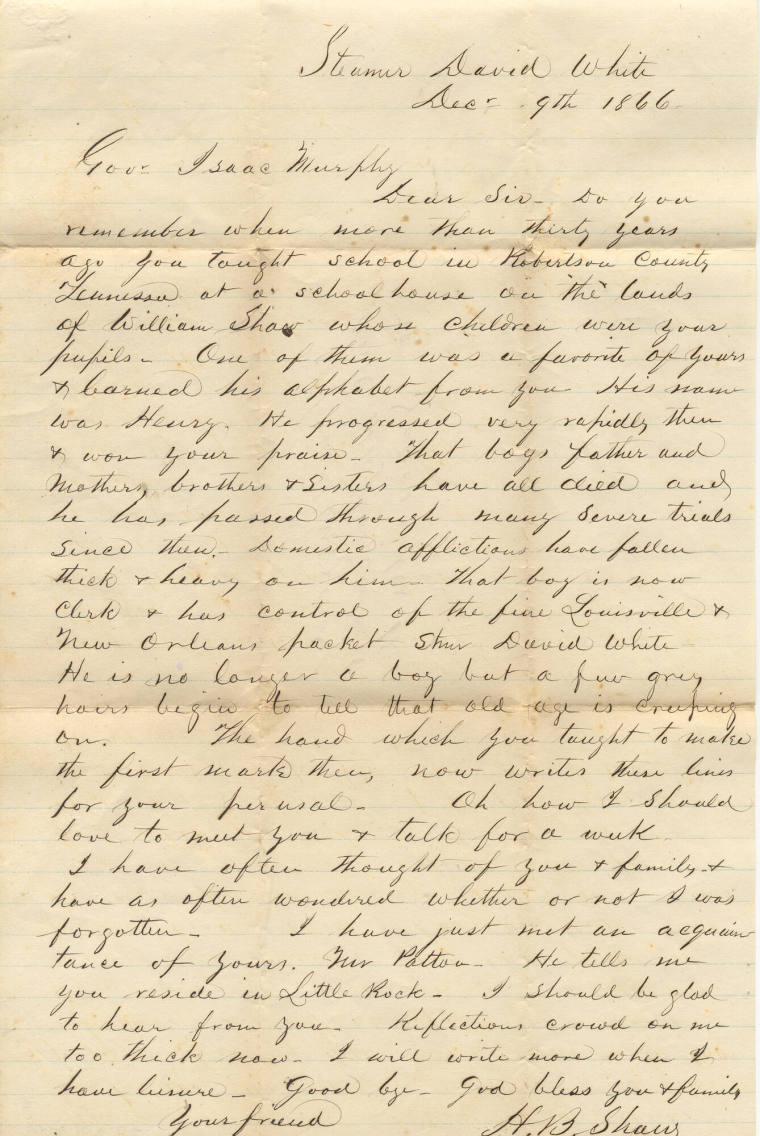 Steamer David White
Decr 9th 1866
Govr Isaac Murphy
Dear Sir- Do you
remember when more than thirty years
ago you taught school in Robertson County
Tennessee at a schoolhouse on the lands
of William Shaw whose children were your
pupils- One of them was a favorite of yours
& learned his alphabet from you His name
was Henry. He progressed very rapidly then
& won your praise- That boys father and
Mother, brothers & Sisters have all died and
he has passed through many severe trials
since then.- Domestic afflictions have fallen
thick & heavy on him- That boy is now
Clerk & has control of the fine Louisville &
New Orleans packet Stmr David White
He is no longer a boy but a few grey
hairs begin to tell that old age is creeping
on. The hand which you taught to make
the first mark then, now writes these lines
for your perusal- Oh how I should
love to meet you & talk for a week
I have often thought of you & family &
have as often wondered whether or not I was
forgotten- I have just met an acquain
tance of yours. Mr Patton- He tells me
you reside in Little Rock- I should be glad
to hear from you- Reflections crowd on me
too thick now- I will write more when I
have leisure- Good bye- God bless you & family
Your friend H. B. Shaw